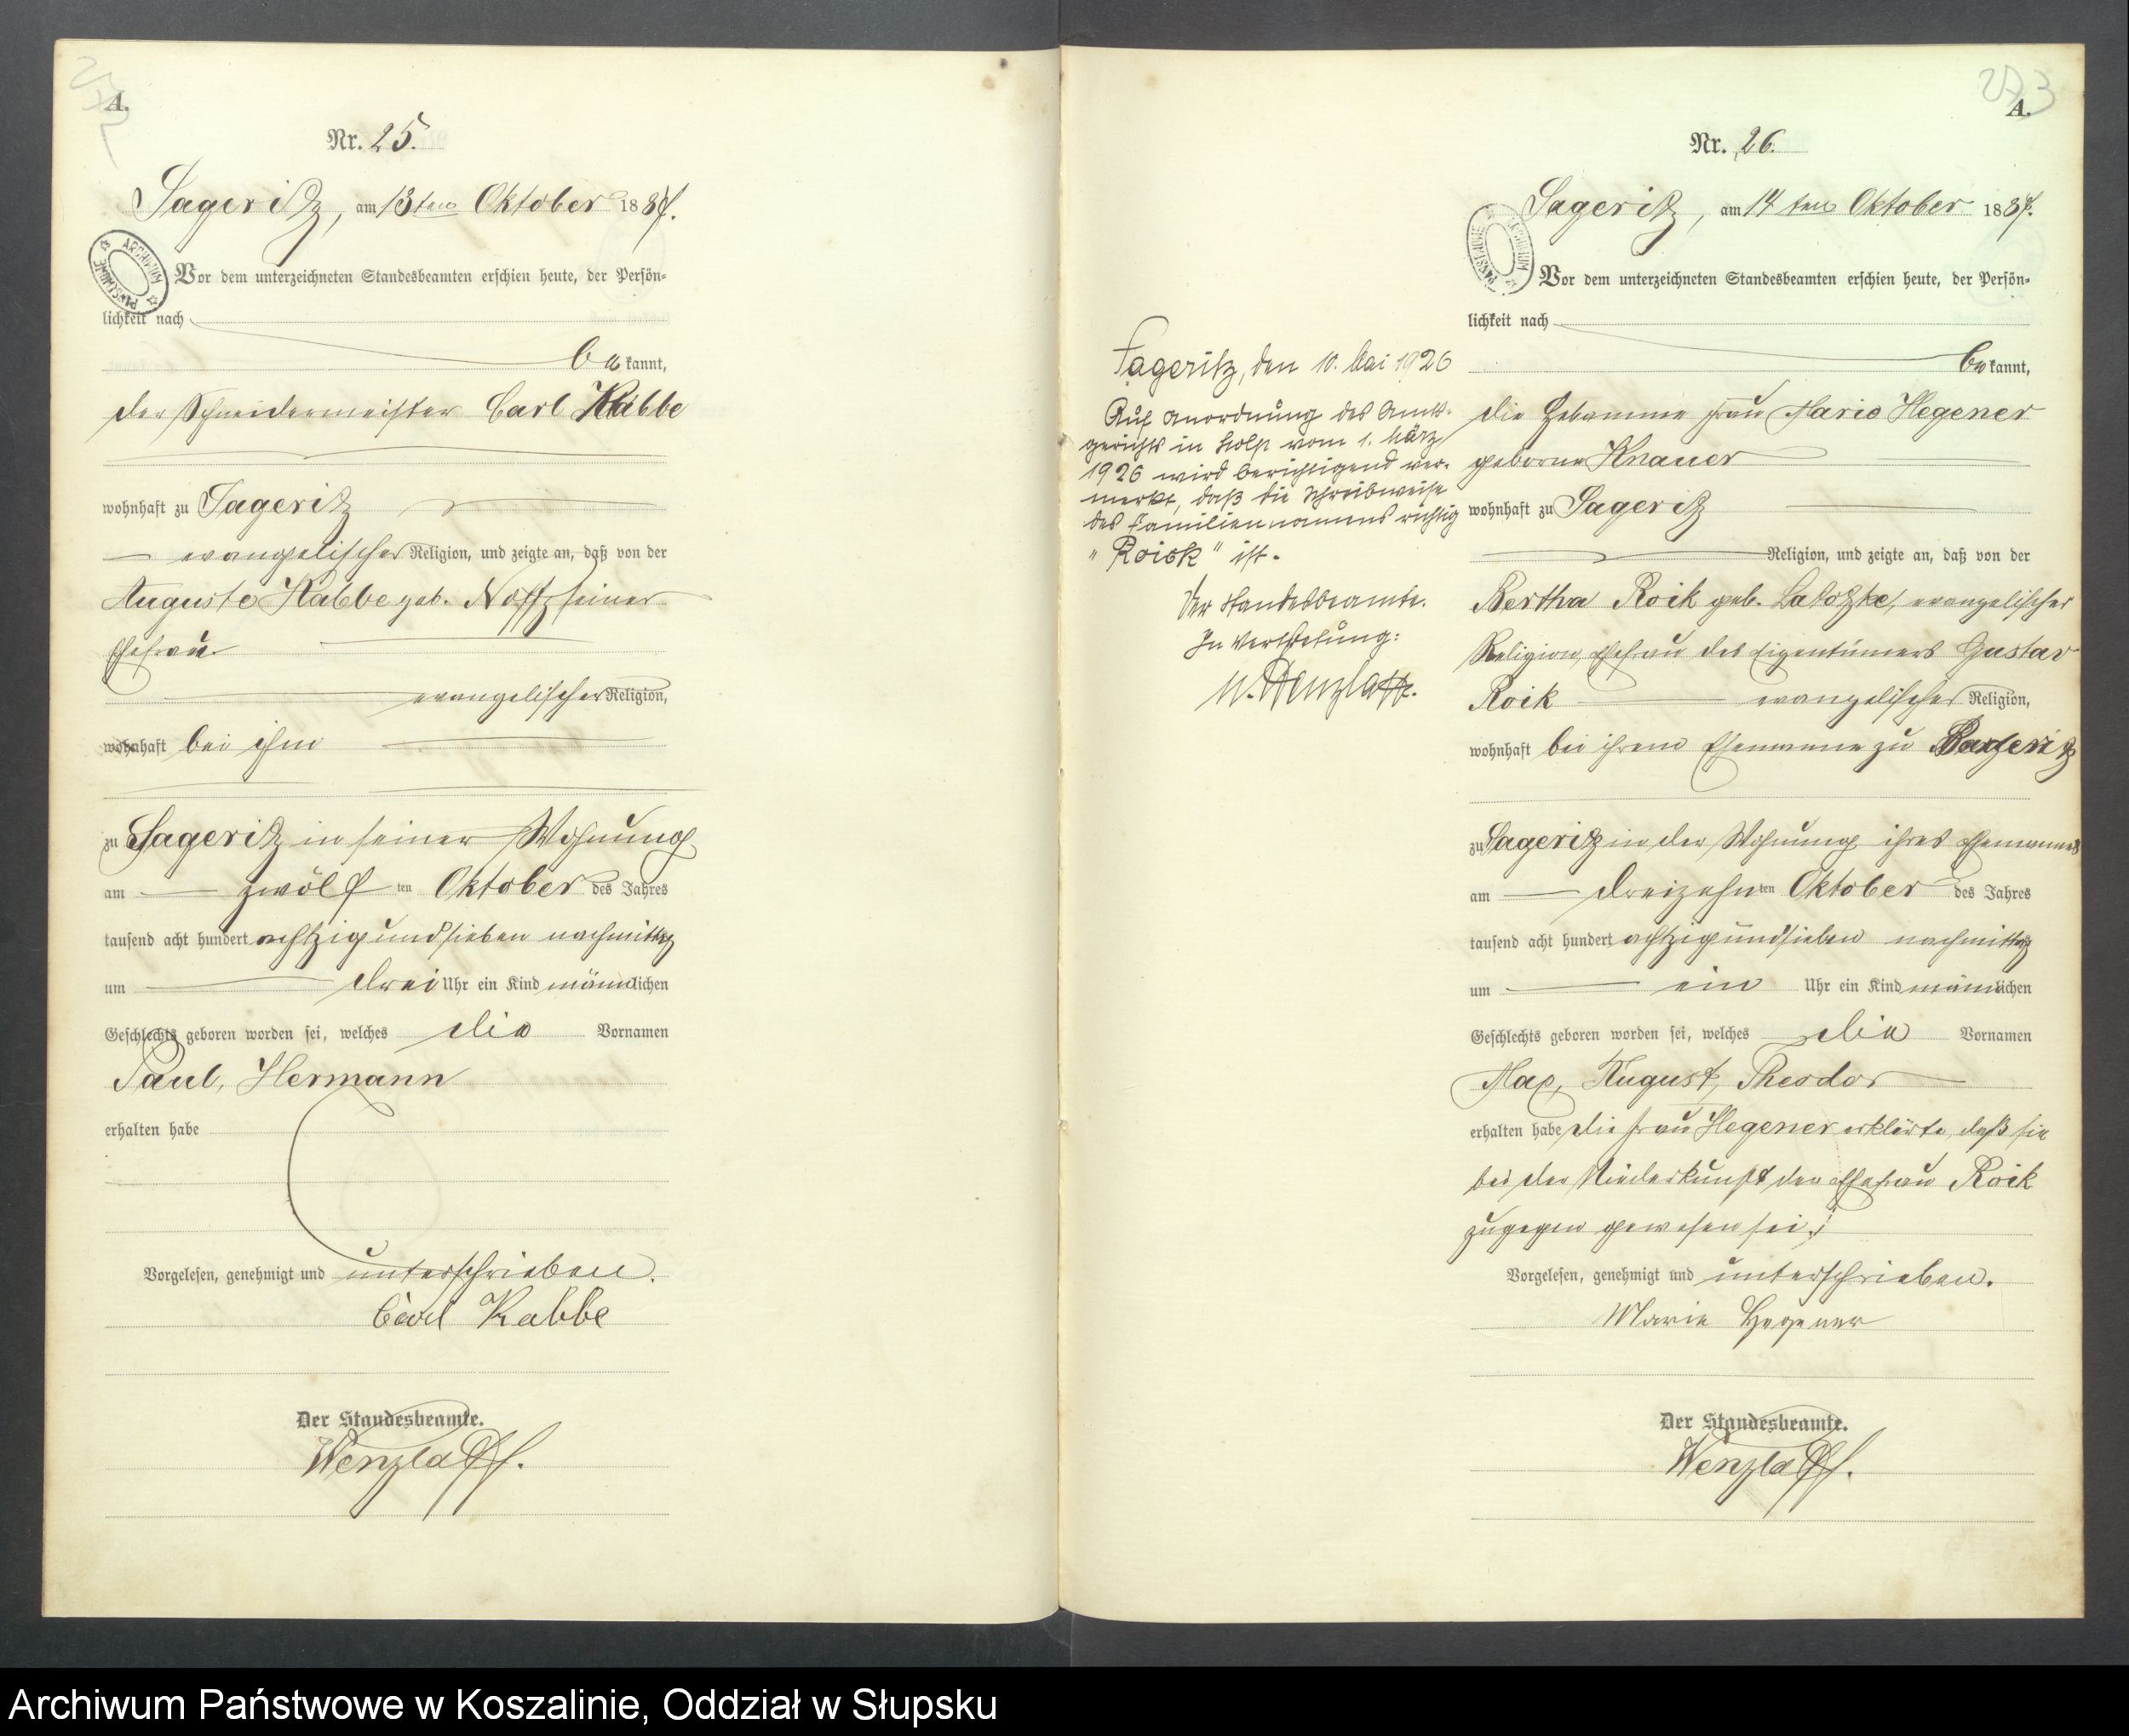 272
A.
Nr. 25.
Sageritz, am 13ten Oktober 1887.
ARCHIWUM PAŃSTWOWE
Vor dem unterzeichneten Standesbeamten erschien heute, der Persön-
lichkeit nach
bekannt,
der Schneidermeister Carl Kabbe
wohnhaft zu Sageritz
evangelischer Religion, und zeigte an, daß von der
Auguste Kabbe geb. Noffz seiner
Ehefrau
evangelischer Religion,
wohnhaft bei ihm
zu Sageritz in seiner Wohnung
am zwölften Oktober des Jahres
tausend acht hundert achtzigundsieben nachmittag
um drei Uhr ein Kind männlichen
Geschlechts geboren worden sei, welches die Vornamen
Paul, Hermann
erhalten habe
Vorgelesen, genehmigt und unterschrieben.
Carl Kabbe
Der Standesbeamte.
Wenzlaff.
273
A.
Nr. 26.
Sageritz, am 14ten Oktober 1887.
ARCHIWUM PAŃSTWOWE
Vor dem unterzeichneten Standesbeamten erschien heute, der Persön-
lichkeit nach
bekannt,
die Hebamme Frau Marie Hegener
geborne Knauer
wohnhaft zu Sageritz
Religion, und zeigte an, daß von der
Bertha Roik geb. Latotzke, evangelischer
Religion, Ehefrau des Eigentümers Gustav
Roik evangelischer Religion,
wohnhaft bei ihrem Ehemanne zu Sageritz
zu Sageritz in der Wohnung ihres Ehemannes
am dreizehnten Oktober des Jahres
tausend acht hundert achtzigundsieben nachmittag
um ein Uhr ein Kind männlichen
Geschlechts geboren worden sei, welches die Vornamen
Max, August, Theodor
erhalten habe die Frau Hegener erklärte, daß sie
bei der Niederkunft der Ehefrau Roik
zugegen gewesen sei.
Vorgelesen, genehmigt und unterschrieben.
Marie Hegener
Der Standesbeamte.
Wenzlaff.
Sageritz, den 10. Mai 1926
Auf Anordnung des Amts-
gerichts in Stolp vom 1. März
1926 wird berichtigend ver-
merkt, daß die Schreibweise
des Familiennamens richtig
"Roick" ist.
Der Standesbeamte.
In Vertretung:
W. Wenzlaff.
Archiwum Państwowe w Koszalinie, Oddział w Słupsku